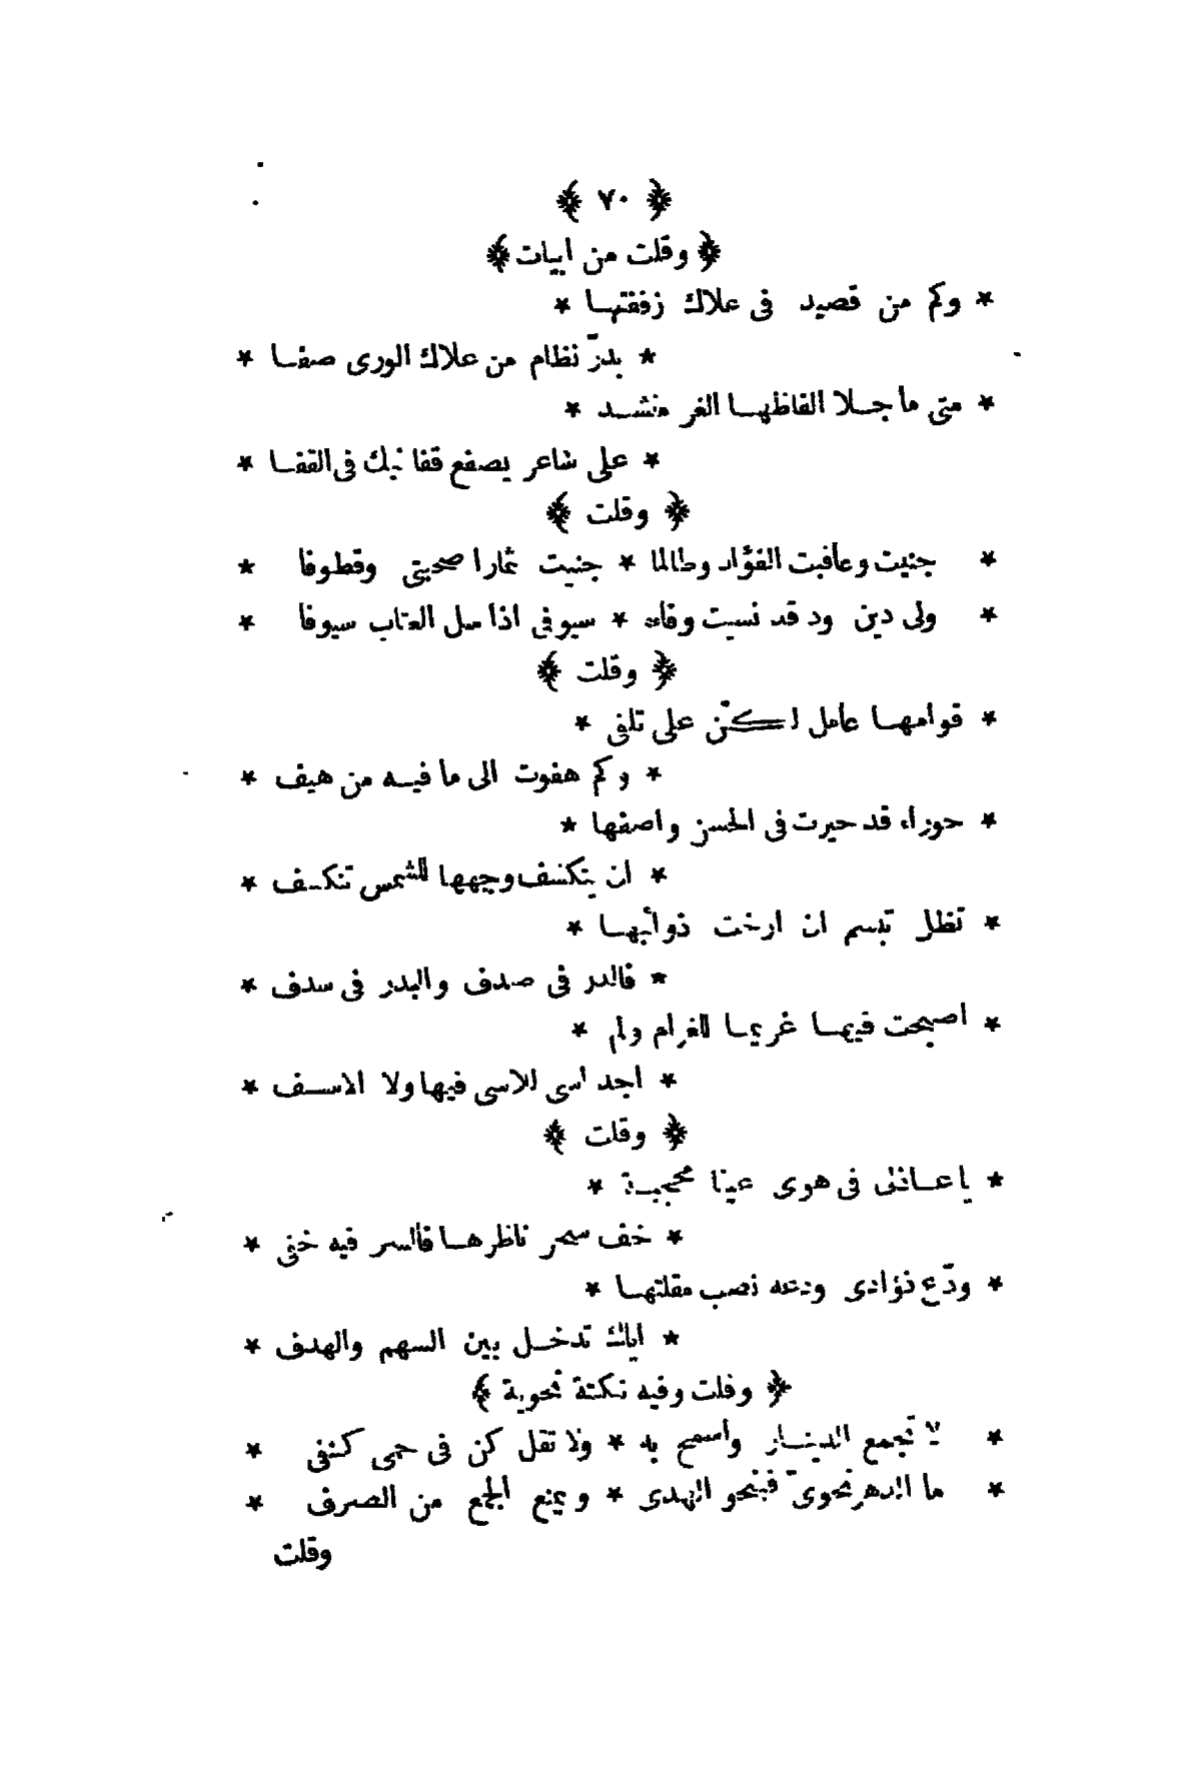 ﴿ ٧٠ ﴾
﴿ وقلت من ابيات ﴾
* وكم من قصيد فى علاك زفقتهـا *
* بدرّ نظام من علاك الورى صفـا *
* متى ما جـلا الفاظهـا الغر منشـد *
* على شاعر يصفع قفا نبك فى القفـا *
﴿ وقلت ﴾
* جنيت وعاقبت الفؤاد وطالما * جنيت ثمارا صحبتى وقطوفا *
* ولى دين ود قد نسيت وفاءه * سيوفى اذا سل العتاب سيوفا *
﴿ وقلت ﴾
* قوامهـا عامل لكنّ على تلفى *
* وكم هفوت الى ما فيـه من هيف *
* حوراء قد حيرت فى الحسن واصفها *
* ان ينكشف وجهها للشمس تنكسف *
* تظل تبسم ان ارخت ذوائبهـا *
* فالدر فى صدف والبدر فى سدف *
* اصبحت فيهـا غريمـا للغرام ولم *
* اجد اسى للاسى فيها ولا الاسـف *
﴿ وقلت ﴾
* يا عـاذلى فى هوى عينا محجبـة *
* خف سحر ناظرهـا فالسر فيه خفى *
* ودّع فؤادى ودعه نصب مقلتهـا *
* اياك تدخـل بين السهم والهدف *
﴿ وقلت وفيه نكتة نحوية ﴾
* لا تجمع الدينـار واسمح به * ولا تقل كن فى حمى كنفى *
* ما الدهر نحوىّ فينحو الهدى * ويمنع الجمع من الصرف *
وقلت